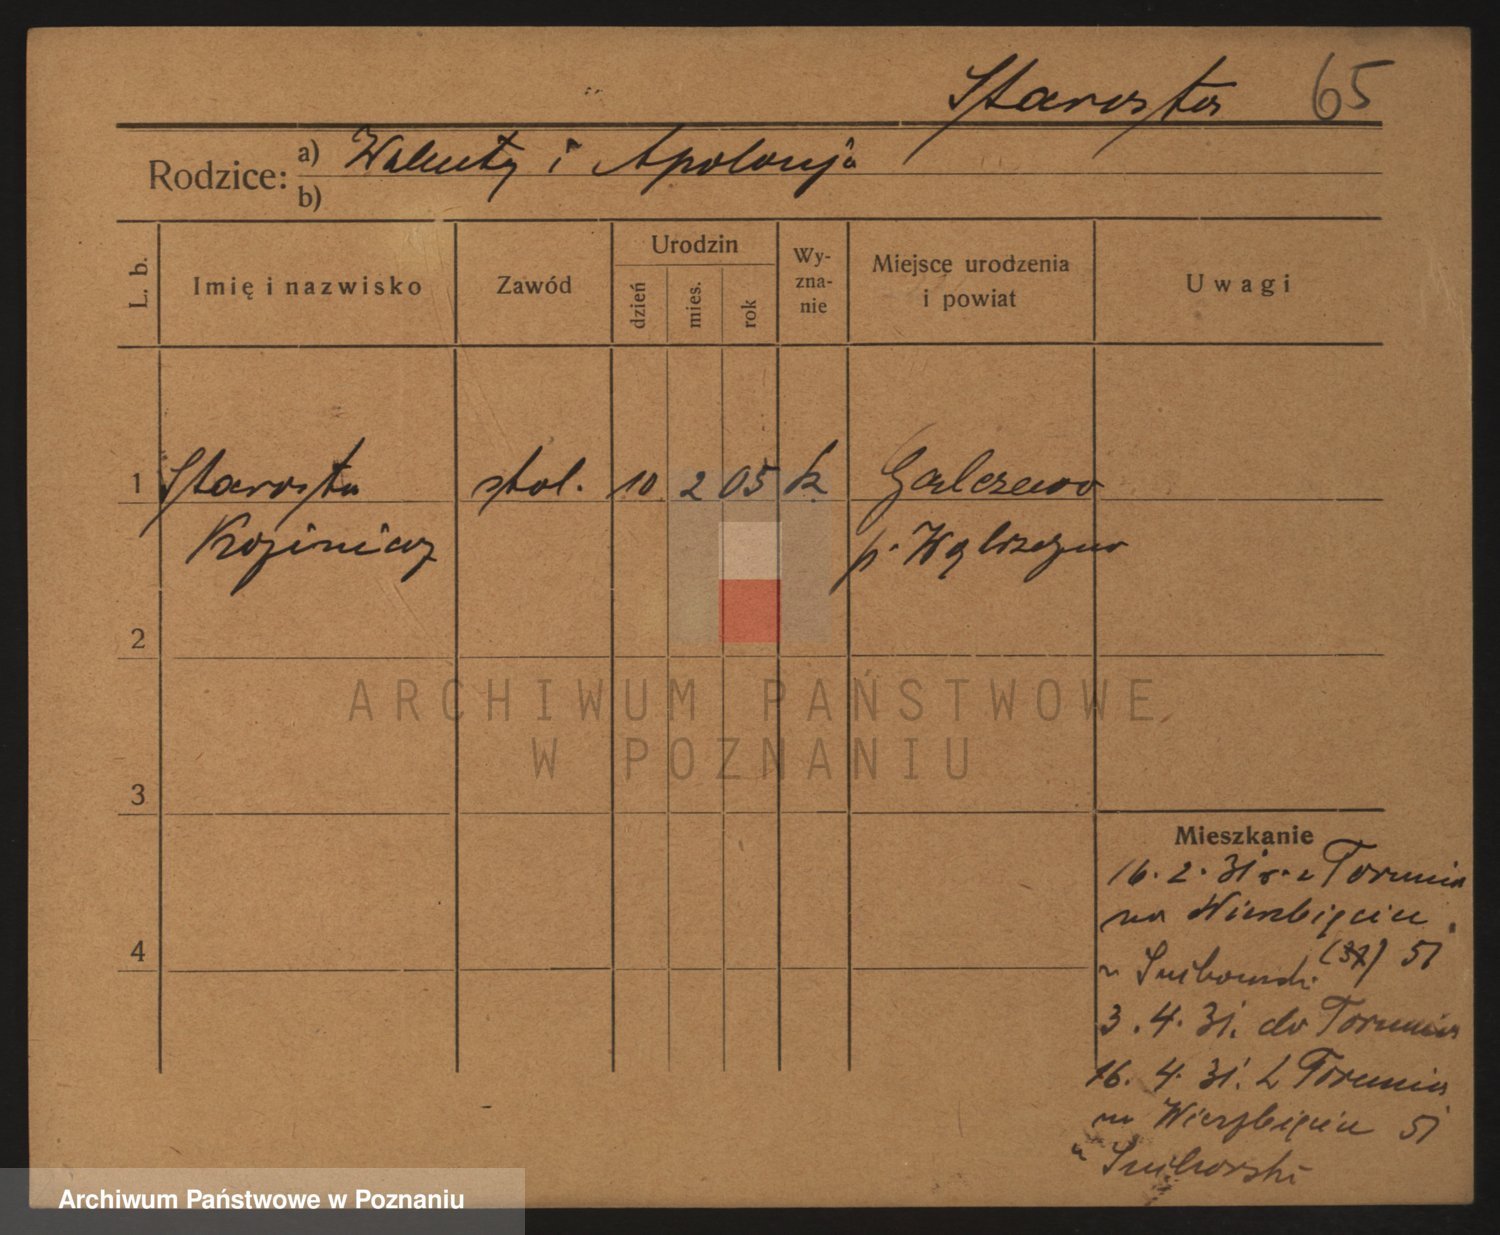 Starosta 65
Rodzice: a) Walenty i Apolonja
b)
L. b. Imię i nazwisko Zawód Urodzin dzień mies. rok Wy-zna-nie Miejsce urodzenia i powiat Uwagi
1 Starosta stol. 10 2 05 k. Galczewo
Kazimierz p. Wąbrzeźno
2
ARCHIWUM PAŃSTWOWE
W POZNANIU
3
Mieszkanie
16. 2. 31 r. z Torunia
na Wierzbięcice
4
(37) 51
3. 4. 31. do Torunia
16. 4. 31. z Torunia
na Wierzbięcice 51
u
Archiwum Państwowe w Poznaniu